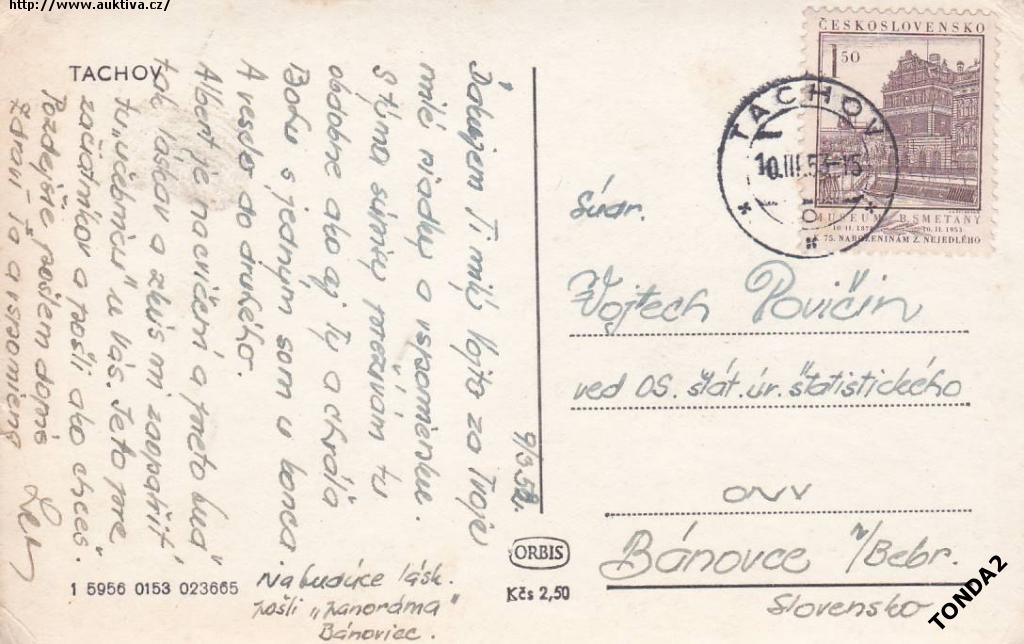 http://www.auktiva.cz/
TACHOV
Ďakujem Ti milý Vojto za Tvoje
milé riadky a vspomienku.
S týma súrinky prežívam tu
obdobne ako aj Ty a chvála
Bohu s jedným som u konca.
A veselo do druhého.
Albert je na cvičení a preto buď
tak láskav a zhús mi zaopatřiť
tú „učebnicu" u Vás. Je to pre
začiatníkov a pošli ako chceš.
Pozdejšie pošlem domov
Zdraví Ťa a vspomíená
9/3.53.
Na budúce lásk.
pošli „panoráma"
Bánoviec.
1 5956 0153 023665
ORBIS
Kčs 2,50
ČESKOSLOVENSKO
1 50
MUSEUM B. SMETANY
10. II. 1878 10. II. 1953
K 75. NAROZENINÁM Z. NEJEDLÉHO
TACHOV
10.III.53-15
Súdr.
Vojtech Povičin
ved OS. štát. úr. štatistického
ONV
Bánovce n/Bebr.
Slovensko
TONDA2